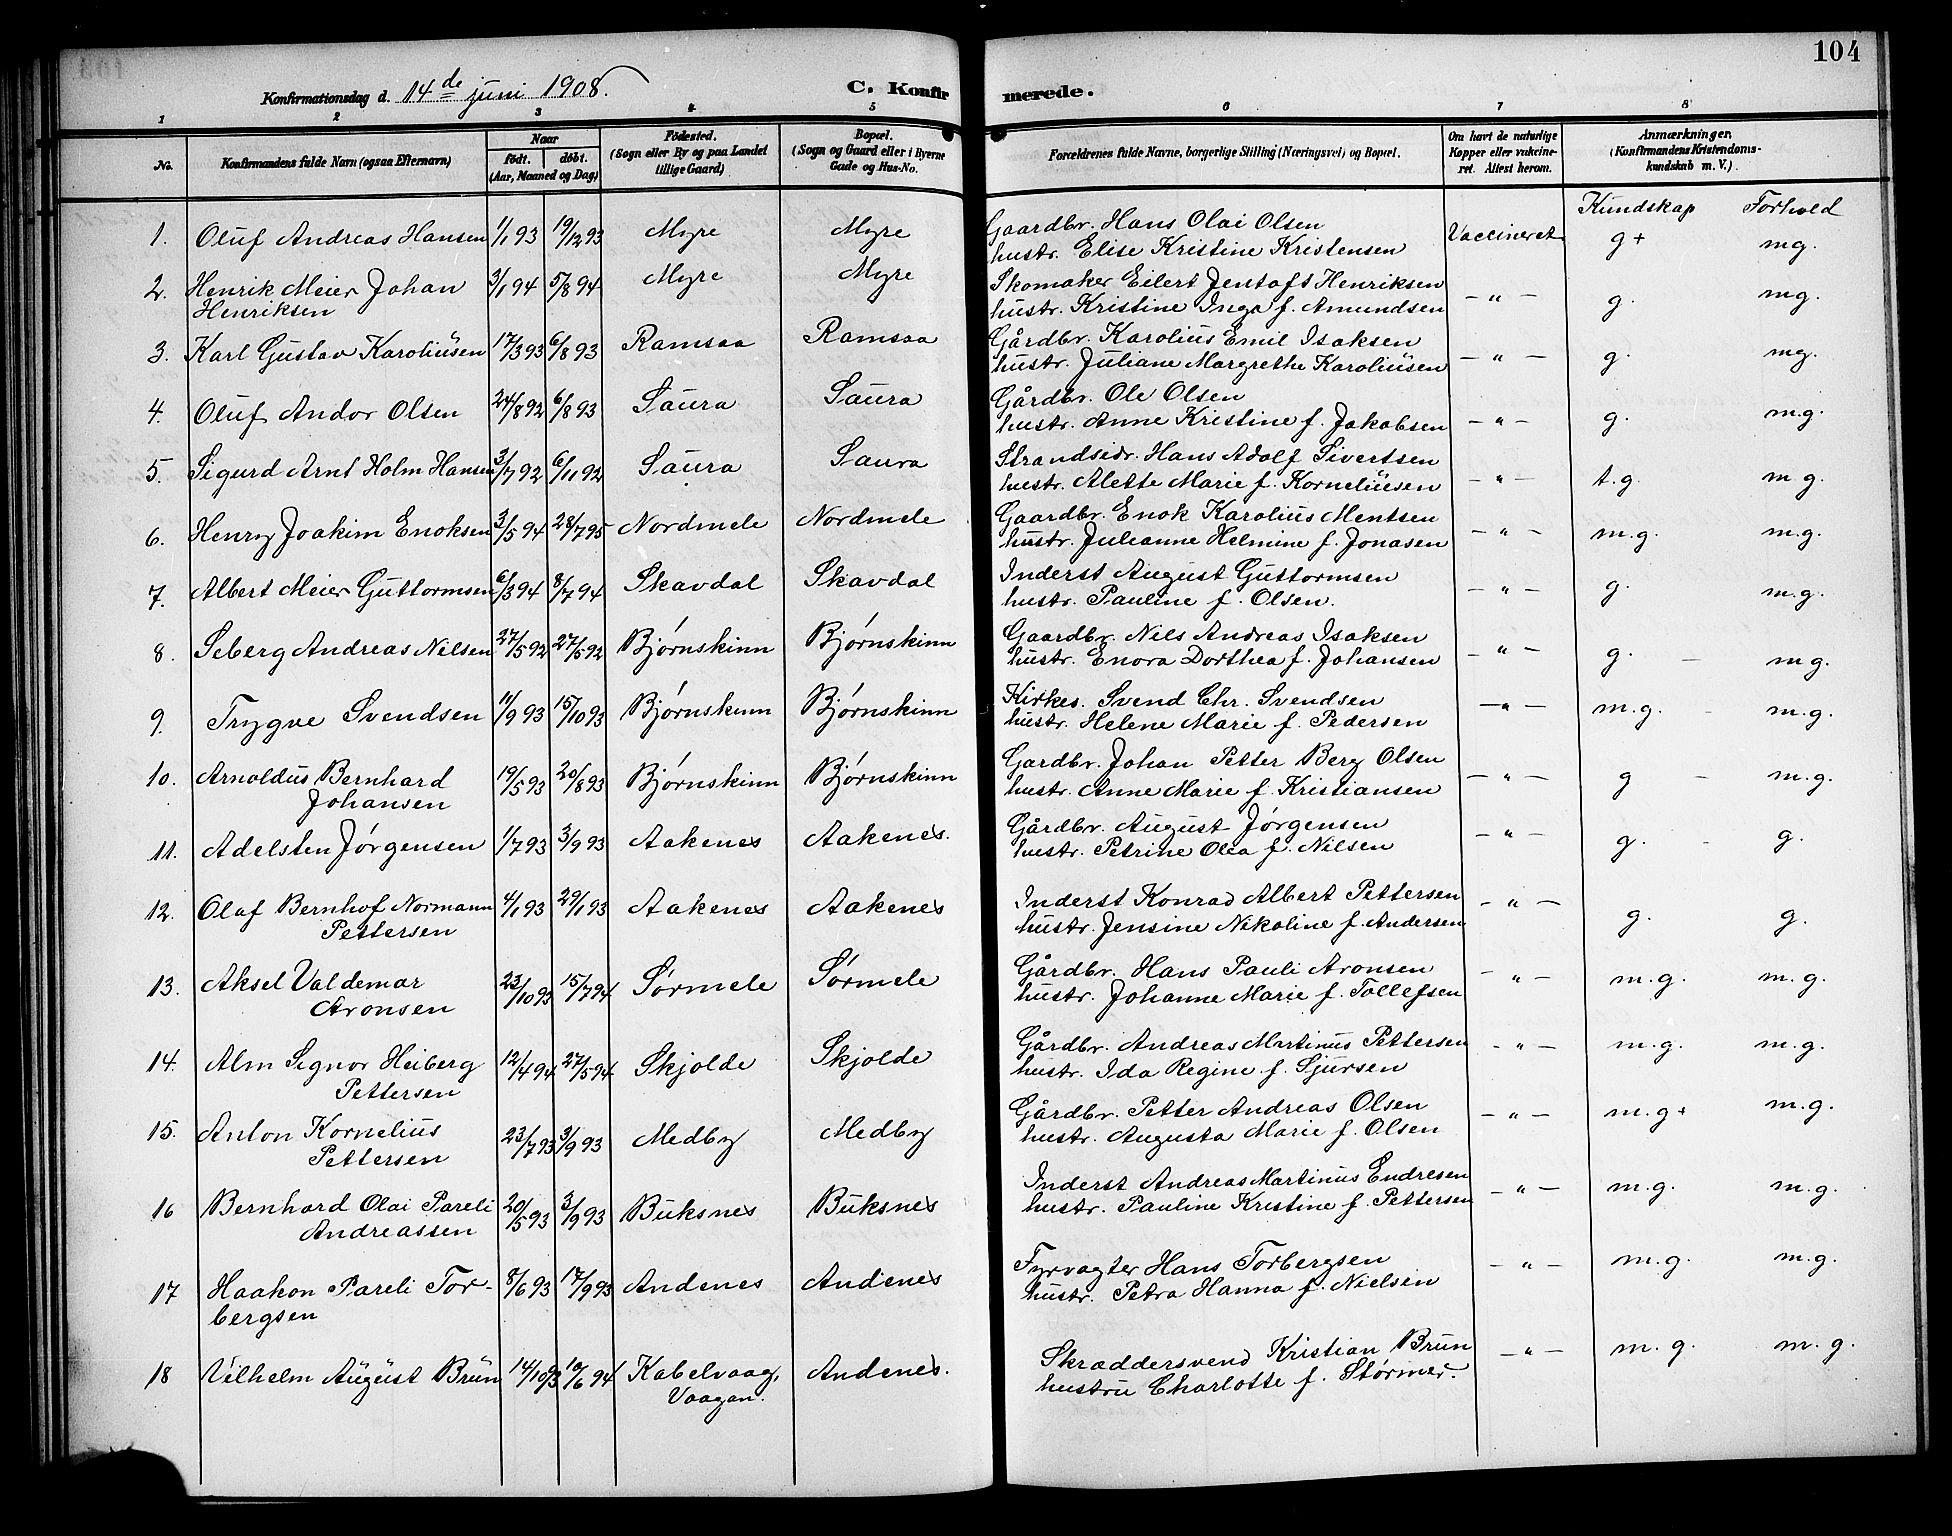 104
Konfirmationsdag d. 14de juni 1908. C. Konfirmerede.
1 2 3 4 5 6 7 8
No. Konfirmandens fulde Navn (ogsaa Efternavn) Naar født. døbt. (Aar, Maaned og Dag) Fødested. (Sogn eller By og paa Landet tillige Gaard) Bopæl. (Sogn og Gaard eller i Byerne Gade og Hus-No. Forældrenes fulde Navne, borgerlige Stilling (Næringsvei) og Bopæl. Om havt de naturlige Kopper eller vakcineret. Attest herom. Anmærkninger. (Konfirmandens Kristendomskundskab m. V.)
Kundskap Forhold
1. Oluf Andreas Hansen 1/1 93 19/12 93 Myre Myre Gaardbr. Hans Olai Olsen Vaccineret g+ mg.
hustr. Elise Kristine Kristensen
2. Henrik Meier Johan 3/1 94 5/8 94 Myre Myre Skomaker Eilert Jentoft Henriksen — " — g. mg.
Henriksen hustr. Kristine Inga f. Amundsen
3. Karl Gustav Karoliusen 17/3 93 6/8 93 Ramsaa Ramsaa Gårdbr. Karolius Emil Isaksen — " — g. mg.
hustr. Juliane Margrethe Karoliusen
4. Oluf Andor Olsen 24/8 92 6/8 93 Saura Saura Gårdbr. Ole Olsen — " — g. m.g.
hustr. Anne Kristine f. Jakobsen
5. Sigurd Arnt Holm Hansen 3/7 92 6/11 92 Saura Saura Strandsidr. Hans Adolf Sivertsen — " — t.g. m g.
hustr. Alette Marie f. Korneliusen
6. Henry Joakim Enoksen 3/5 94 28/7 95 Nordmele Nordmele Gaardbr. Enok Karolius Mentsen — " — m.g. m.g.
hustr. Julianne Helmine f. Jonasen
7. Albert Meier Guttormsen 6/3 94 8/7 94 Skavdal Skavdal Inderst August Guttormsen — " — g. m.g.
hustr. Pauline f. Olsen.
8. Seberg Andreas Nilsen 27/5 92 27/5 92 Bjørnskinn Bjørnskinn Gaardbr. Nils Andreas Isaksen — " — g. — mg.
hustr. Enora Dorthea f. Johansen
9. Trygve Svendsen 11/9 93 15/10 93 Bjørnskinn Bjørnskinn Kirkes. Svend Chr. Svendsen — " — m.g. - m.g.
hustr. Helene Marie f. Pedersen
10. Arnoldus Bernhard 19/5 93 20/8 93 Bjørnskinn Bjørnskinn Gardbr. Johan Petter Berg Olsen — " — g - m.g.
Johansen hustr. Anne Marie f. Kristiansen
11. Adelsten Jørgensen 1/7 93 3/9 93 Aakenes Aakenes. Gårdbr. August Jørgensen — " — g. - g.
hustr. Petrine Olea f. Nilsen
12. Olaf Bernhof Normann 4/1 93 29/1 93 Aakenes Aakenes Inderst Konrad Albert Pettersen — " — g. g.
Pettersen hustr. Jensine Nikoline f. Andersen
13. Aksel Valdemar 23/10 93 15/7 94 Sørmele Sørmele Gårdbr. Hans Pauli Aronsen — " — m.g. m.g.
Aronsen hustr. Johanne Marie f. Tollefsen
14. Alm Signor Heiberg 12/4 94 27/5 94 Skjolde Skjolde Gårdbr. Andreas Martinus Pettersen — " — m.g. m.g.
Pettersen hustr. Ida Regine f. Sjursen
15. Anton Kornelius 23/7 93 3/9 93 Medby Medby Gårdbr. Petter Andreas Olsen — " — m.g+ m.g.
Pettersen hustr. Augusta Marie f. Olsen
16 Bernhard Olai Pareli 20/5 93 3/9 93 Buksnes Buksnes Inderst Andreas Martinus Endresen — " — m.g. m.g.
Andreassen hustr. Pauline Kristine f. Pettersen
17 Haakon Pareli Tor- 8/6 93 17/9 93 Andenes Andenes Fyrvagter Hans Torbergsen — " — m.g. m.g.
bergsen hustr. Petra Hanna f. Nielsen
18 Vilhelm August Brun 14/10 93 10/6 94 Kabelvaag, Andenes. Skræddersvend Kristian Brun — " — m.g. m.g.
Vaagan. hustru Charlotte f. Størmer.